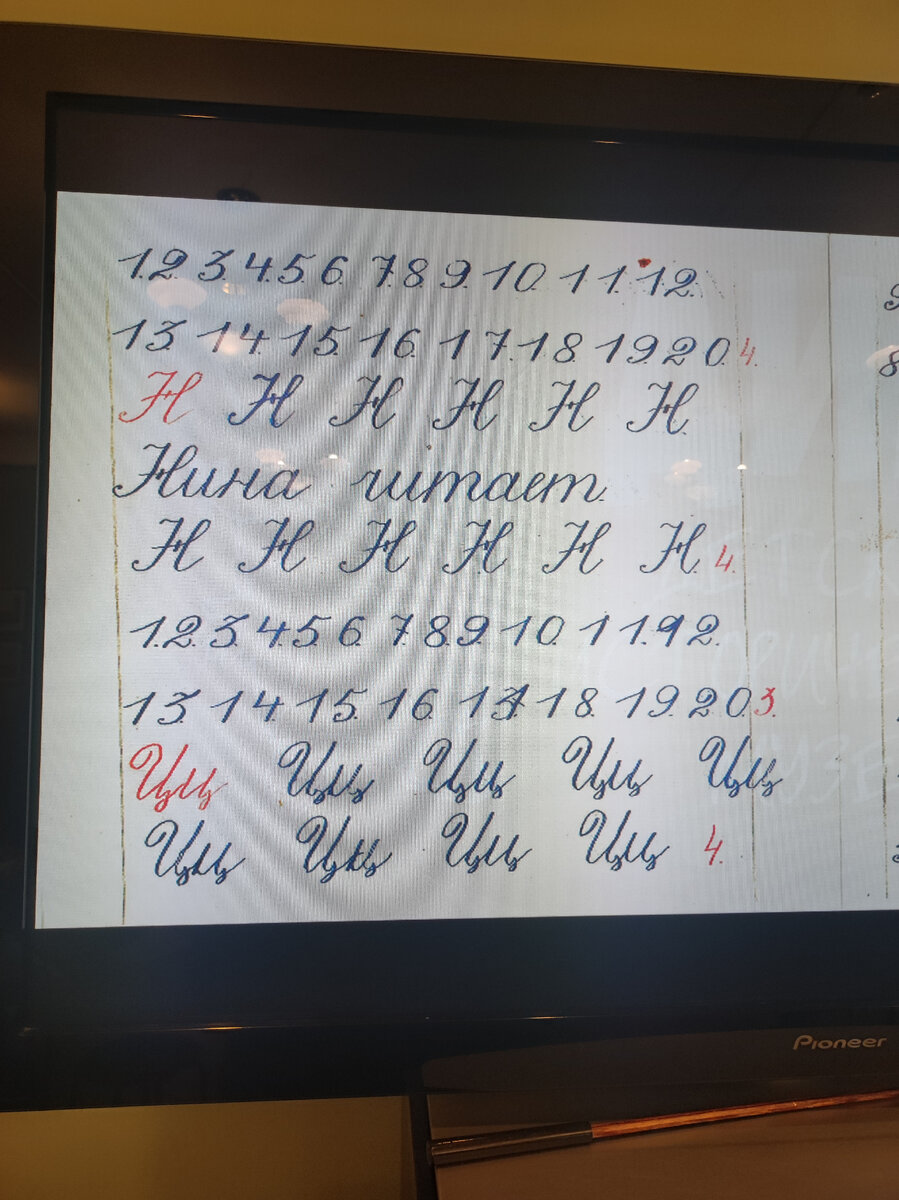 1.2. 3.4.5.6. 7.8.9.10. 11.12.
13. 14. 15. 16. 17.18. 19 20. 4.
Н Н Н Н Н Н
Нина читает.
Н Н Н Н Н Н. 4.
1.2. 3.4.5.6. 7.8.9.10. 11.12.
13. 14. 15. 16. 17 18. 19. 20. 3.
Цц Цц Цц Цц Цц
Цц Цц Цц Цц 4.
Pioneer